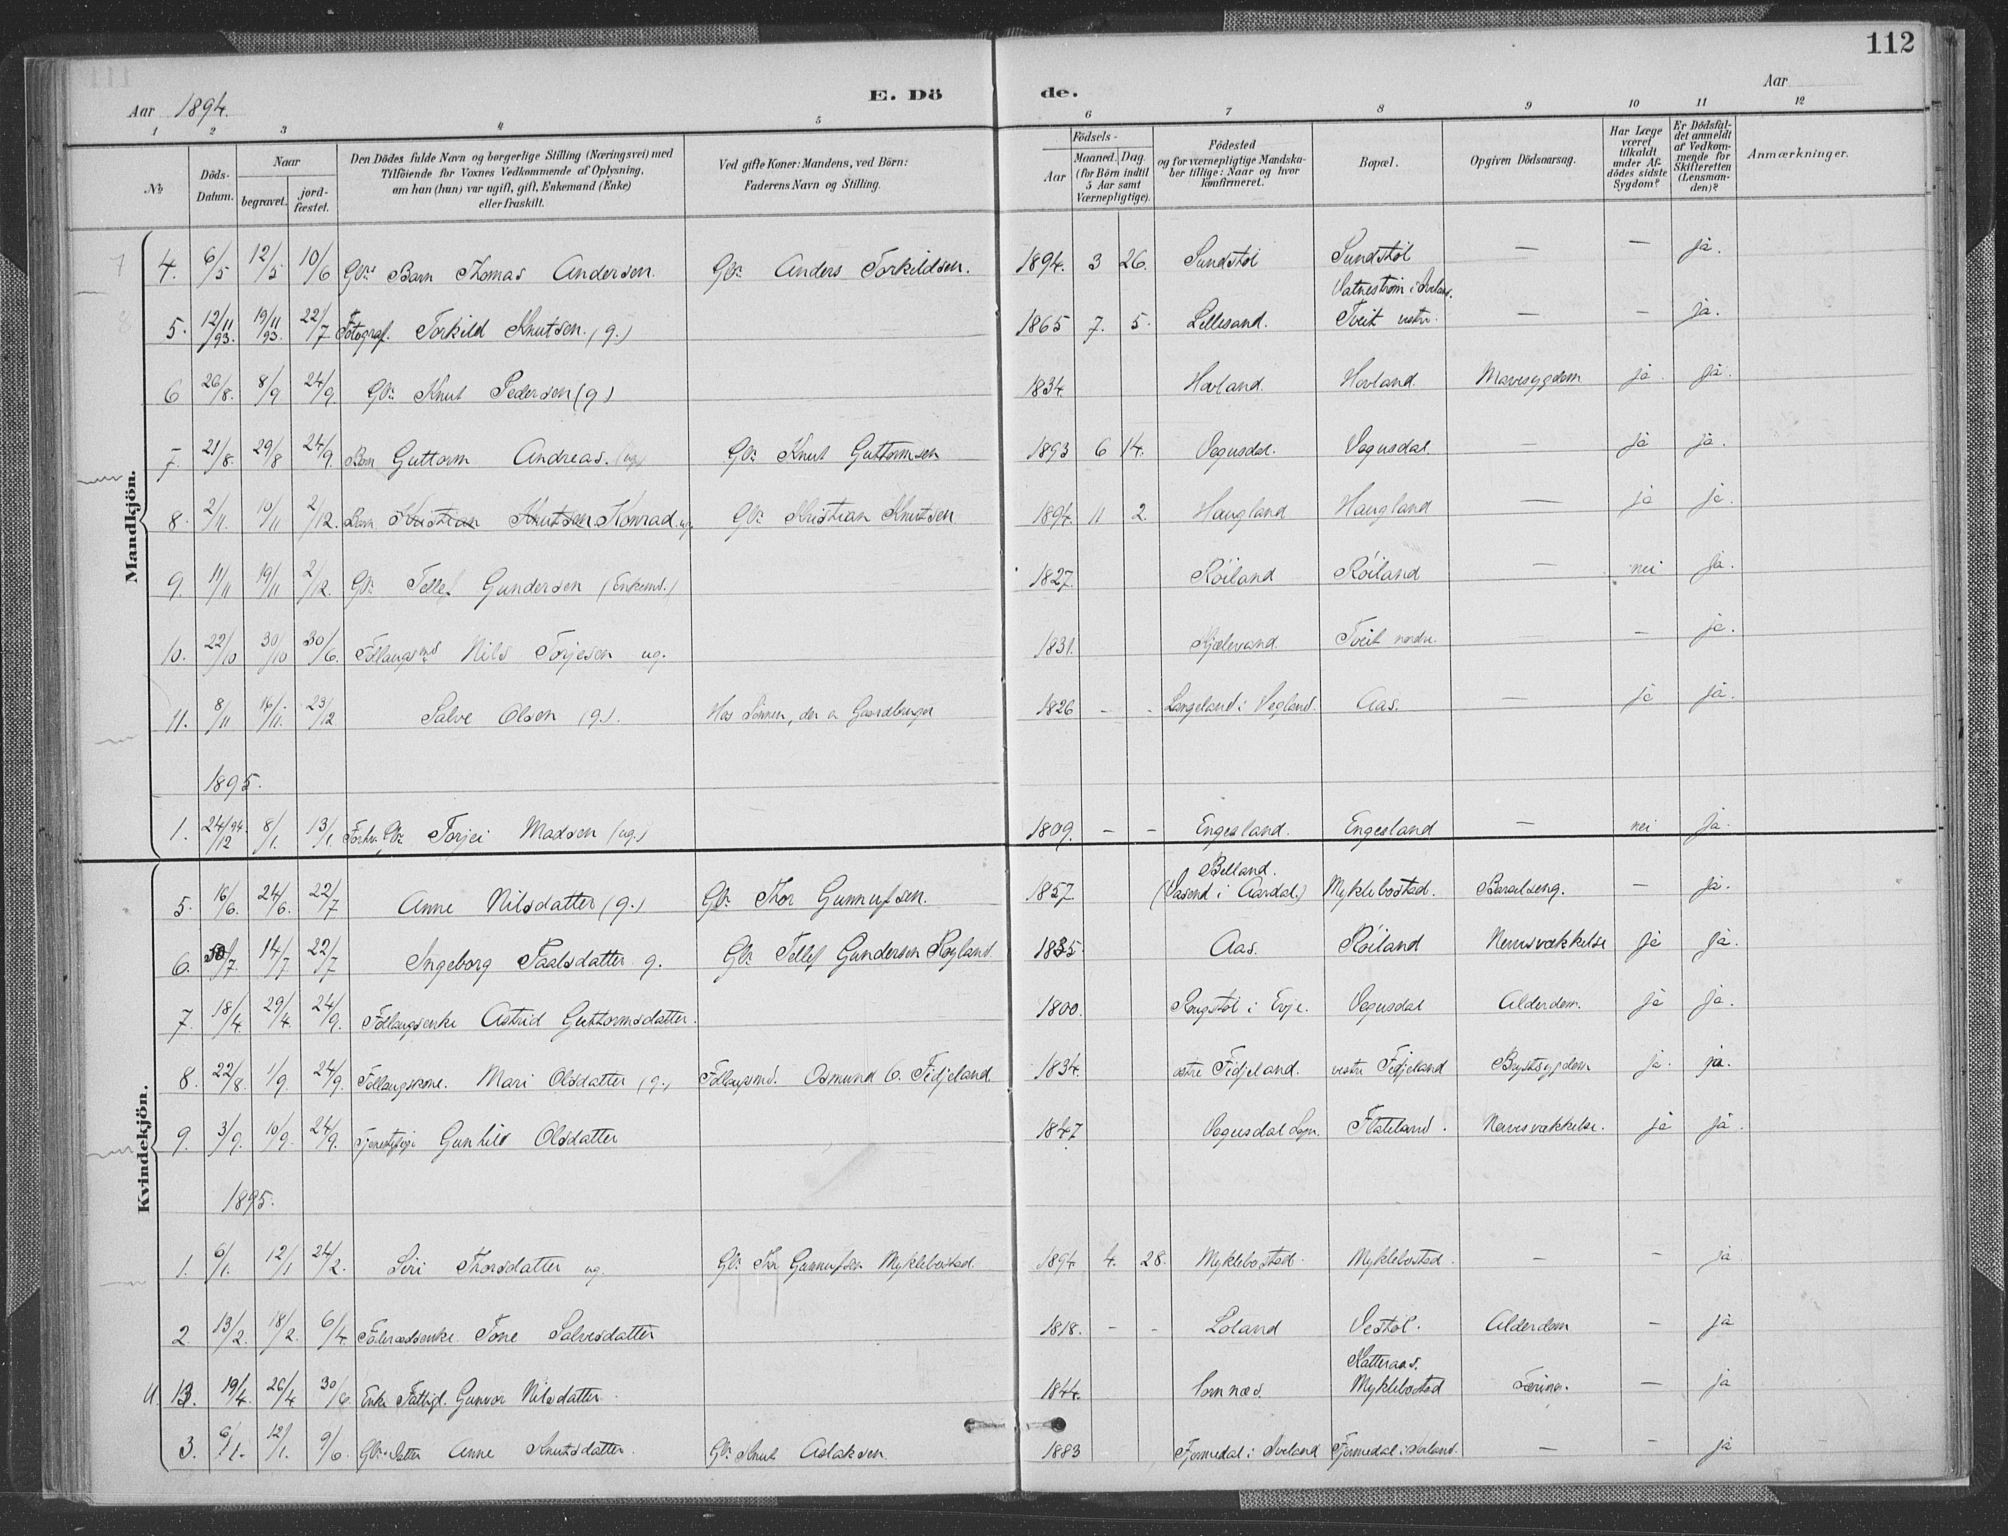 112
Aar 1894. E. Dö de. Aar
1 2 3 4 5 6 7 8 9 10 11 12
No Döds-Datum. Naar begravet. jordfæstet. Den Dödes fulde Navn og borgerlige Stilling (Næringsvei) med Tilföiende for Voxnes Vedkommende af Oplysning, om han (hun) var ugift, gift, Enkemand (Enke) eller fraskilt. Ved gifte Koner: Mandens, ved Börn: Faderens Navn og Stilling. Födsels- Aar Maaned. Dag. (for Börn indtil 5 Aar samt Værnepligtige). Födested og for værnepligtige Mandskaber tillige: Naar og hvor konfirmeret. Bopæl. Opgiven Dödsaarsag. Har Læge været tilkaldt under Afdödes sidste Sygdom? Er Dödsfaldet anmeldt af Vedkommende for Skifteretten (Lensmanden)? Anmærkninger.
Mandkjön.
4. 6/5 12/5 10/6 Gbrs Barn Thomas Andersen Gbr. Anders Torkildsen. 1894. 3 26. Sundstöl Sundstöl — — ja.
5. 12/11 93. 19/11 93. 22/7 Fotograf. Torkild Knutsen. (g.) 1865 7. 5. Lillesand. Vatneström i Iveland. Tveit vestr. — — ja.
6 26/8. 8/9 24/9 Gbr. Knut Pedersen (g) 1834. Hovland. Hovland. Mavesygdom ja. ja.
7. 21/8. 29/8 24/9. Barn Guttorm Andreas. (ug.) Gbr. Knut Guttormsen 1893 6 14. Vegusdal. Vegusdal. — ja ja.
8. 2/11. 10/11 2/12. Barn Kristian Knutsen Konrad. ug Gbr. Kristian Knutsen 1894. 11 2. Haugland Haugland — ja ja.
9. 11/11 19/11 2/12. Gbr. Tellef Gundersen (Enkemd.) 1827. Röiland Röiland — nei ja.
10. 22/10 30/10 30/6. Föllaugsmd Nils Torjesen ug. 1831. Kjælevand. Tveit nordr. — ja.
11. 8/11 16/11. 23/12 Salve Olsen (g.). Hos Sönnen, der er Gaardbruger 1826 - - Langeland i Vegland. Aas. — ja ja.
1895.
1. 24/12 94. 8/1. 13/1 Forhv. Gbr Torjei Madsen (ug.) 1809. — — Engesland. Engesland — nei ja.
Kvindekjön.
5. 16/6. 24/6. 22/7 Anne Nilsdatter (g.) Gbr. Thor Gunnufsen. 1857. Belland. (Vasend i Aardal.) Myklebostad. Barselseng. — ja.
6. /7. 14/7 22/7 Ingeborg Paalsdatter g. Gbr. Tellef Gundersen Rögland. 1835. Aas. Röiland Nervesvækkelse ja ja.
7. 18/4. 29/4. 24/9. Föllaugsenke Astrid Guttormsdatter. 1800. i Evje. Vegusdal Alderdom. ja ja.
8. 22/8. 1/9. 24/9. Föllaugskone. Mari Olsdatter (g.) Föllaugsmd. Osmund O. Fidjeland. 1834. östre Fidjeland. vestre Fidjeland Brystsygdom ja. ja.
9. 3/9. 10/9. 24/9. Tjenestepige Gunhild Olsdatter 1847 Vegusdal Sogn. Flateland. Nervesvækkelse. ja ja.
1895.
1. 6/1. 12/1 24/2. Siri Thorsdatter ug. Gbr. Thor Gunnufsen Myklebostad. 1894. 4. 28. Myklebostad. Myklebostad. — - ja
2. 13/2. 18/2. 6/4. Föderaadsenke. Tone Salvesdatter 1818. - - Loland Vestöl. Alderdom — ja
U. 13. 19/4. 26/4 30/6. Enke Fattigl. Gunvor Nilsdatter. 1844. Katteraas. Myklebostad Tæring. — ja
3. 6/1. 12/1. 9/6. Gbr. Datter Anne Knutsdatter. Gbr. Knut Aslaksen 1883 Fjermedal i Iveland Fjermedal i Iveland. — - ja